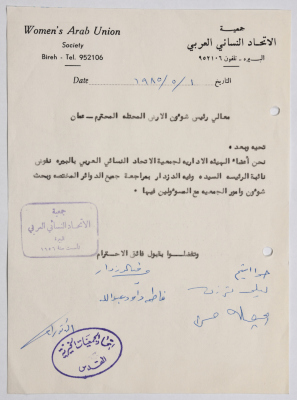 Women's Arab Union
Society
Bireh - Tel. 952106
جمعية
الاتحاد النسائي العربي
البيرة - تلفون ٩٥٢١٠٦
Date ١٩٨٥/٥/١ التاريخ
معالي رئيس شؤون الارض المحتله المحترم - عمان
تحيه وبعد ،
نحن أعضاء الهيئه الاداريه لجمعية الاتحاد النسائي العربي بالبيره نفوض
نائبة الرئيسه السيده وفيه الدزدار بمراجعة جميع الدوائر المختصه وبحث
شؤون وامور الجمعيه مع المسؤولين فيها ٠
وتفضلوا بقبول فائق الاحترام
جمعية
الاتحاد النسائي العربي
البيرة
فاطمه داود عبدالله
جميله حسن
اتحاد الجمعيات الخيرية
القدس